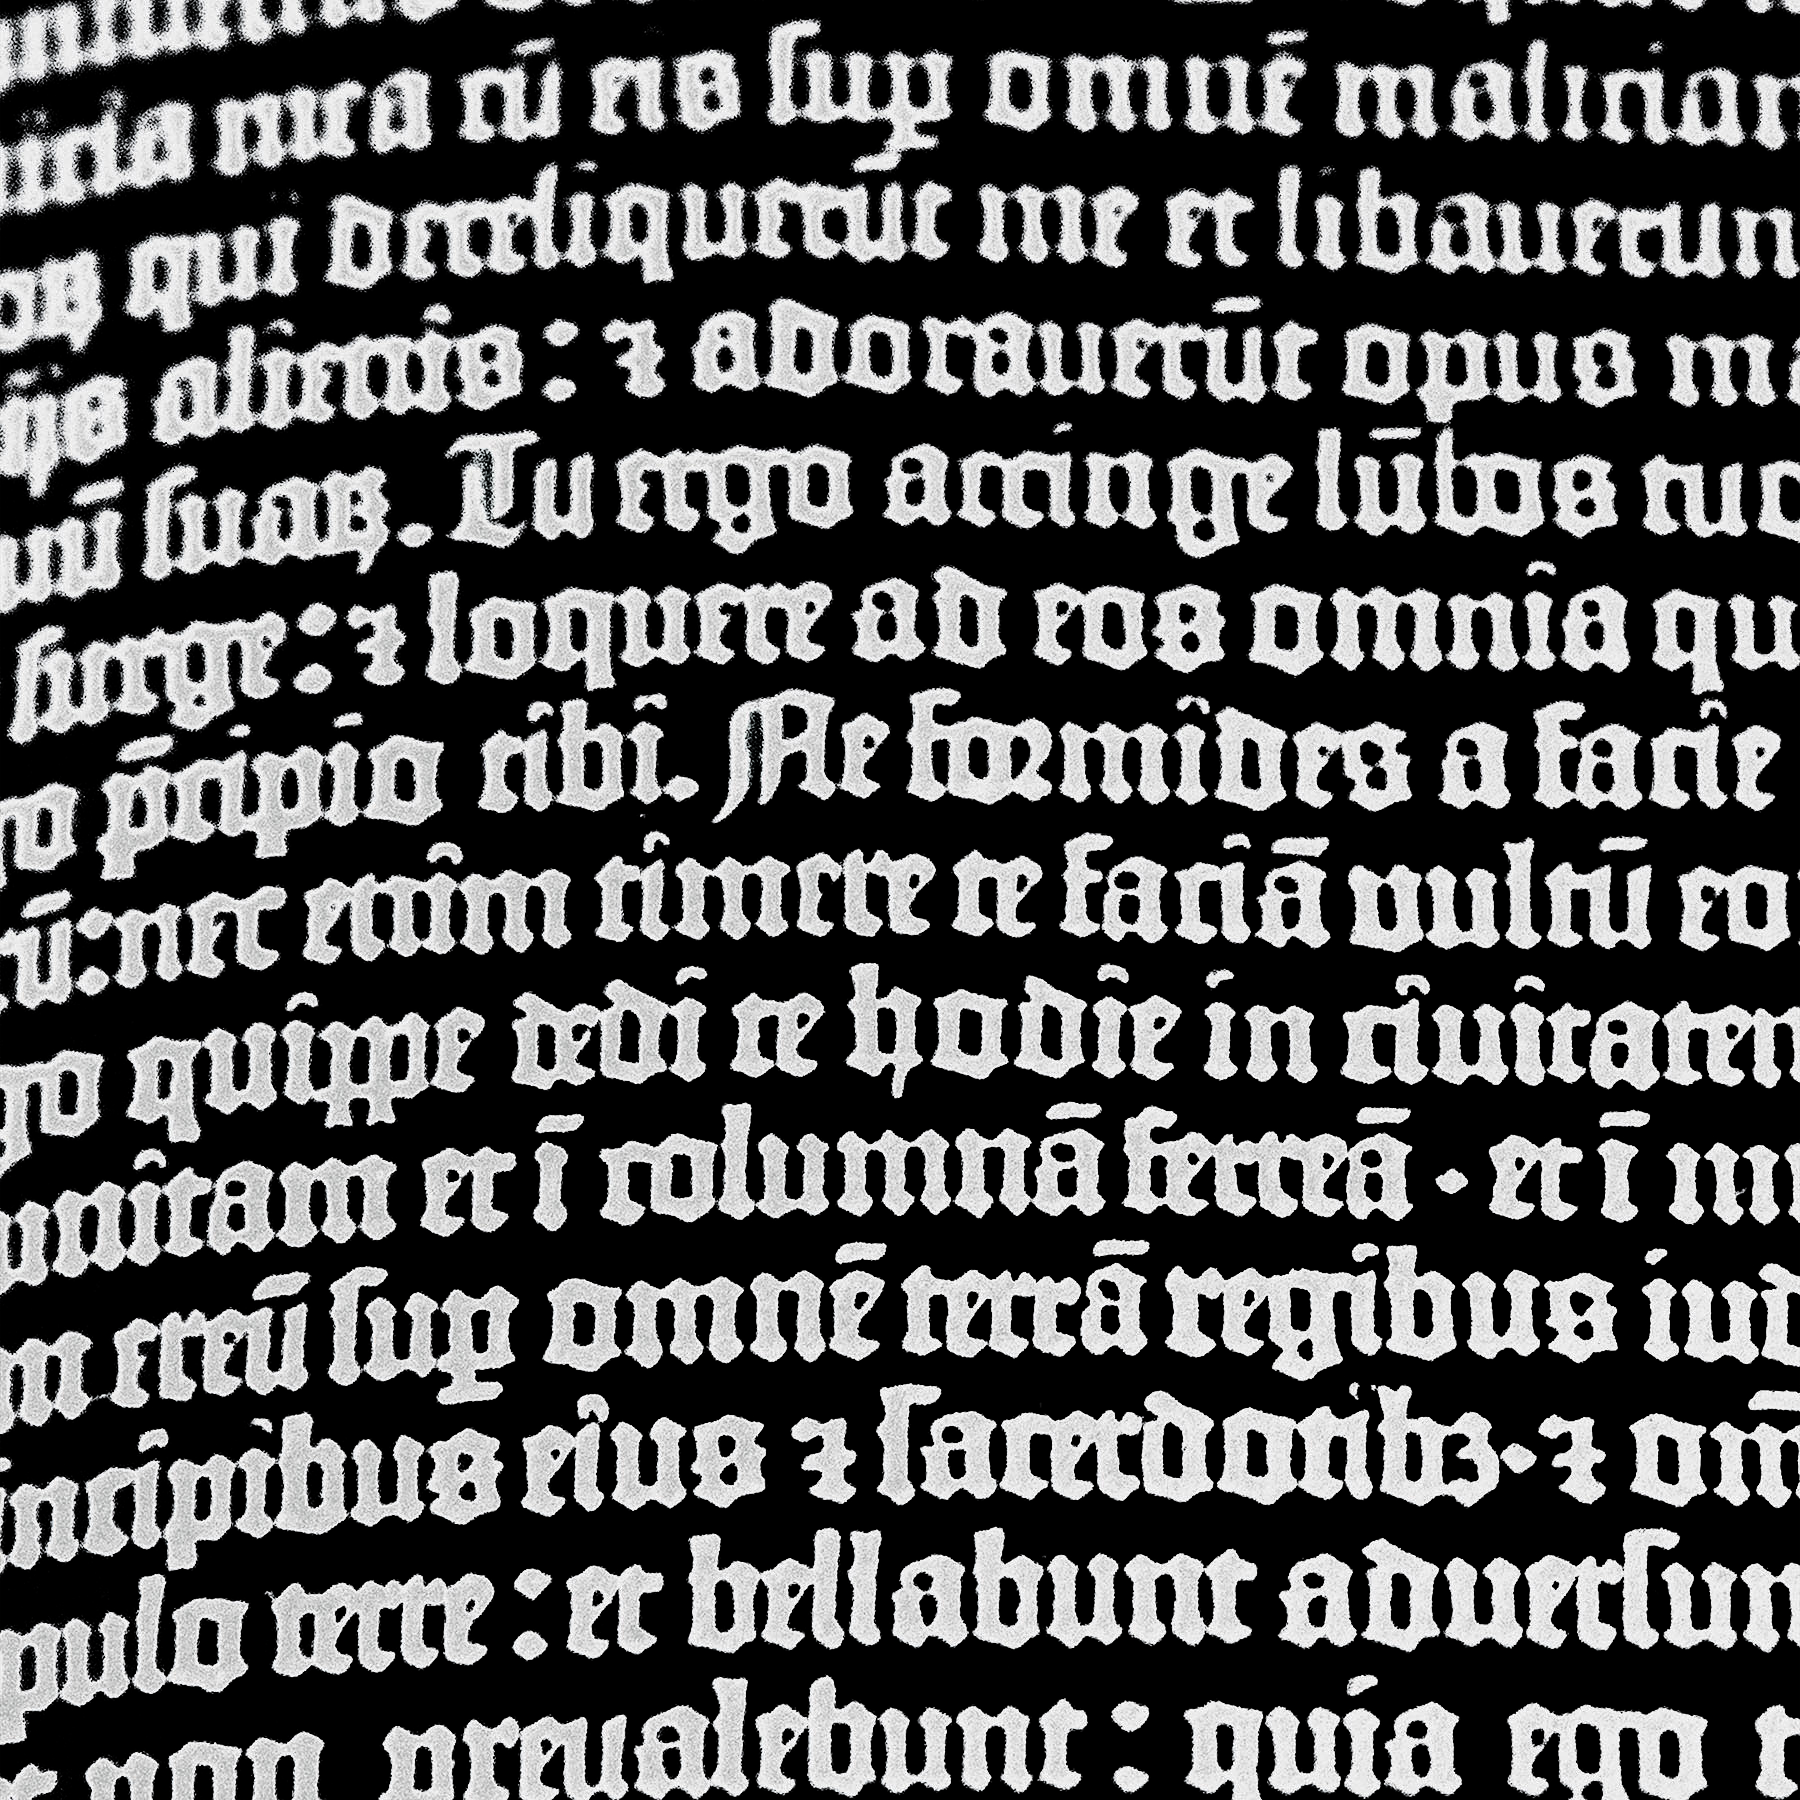 iudicia mea cū eis suꝑ omnē malician
os qui dereliquerūt me et libauerun
dijs alienis: ⁊ adorauerūt opus ma
suaꝝ. Tu ergo accinge lūbos tuo
surge: ⁊ loquere ad eos omnia qu
go p̄cipio tibi. Ne formides a facie
nec enim timere te faciā vultū eo
go quippe dedi te hodie in ciuitatem
munitam et ī columnā ferreā · et ī m
m ereū suꝑ omnē terrā regibus iud
incipibus eius ⁊ sacerdotibꝫ · ⁊ om̄
pulo terre: et bellabunt aduersun
non preualebunt: quia ego